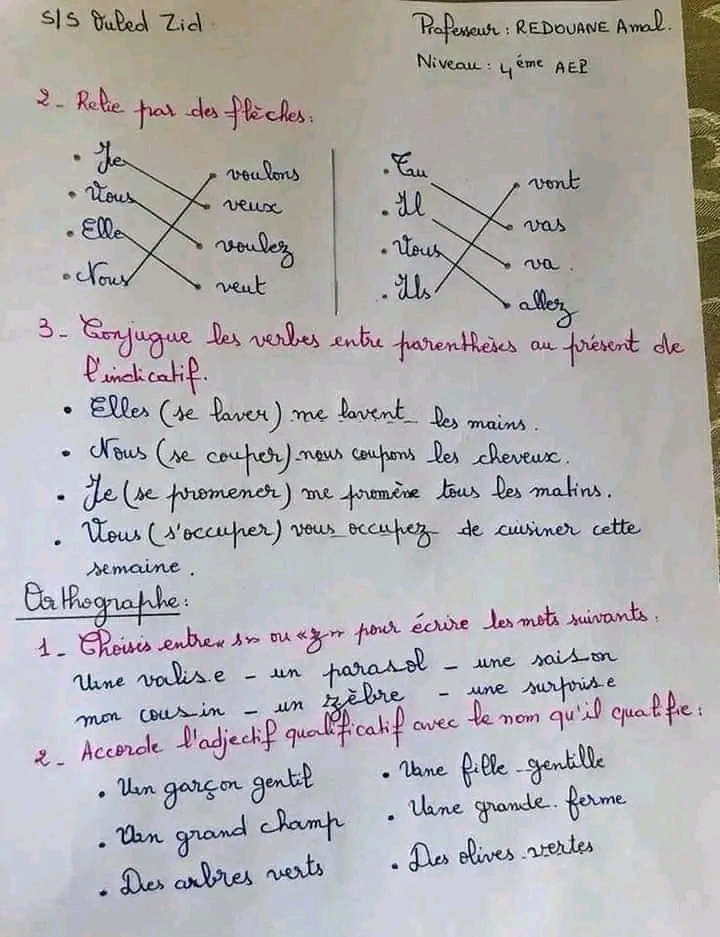 S/S Ouled Zid
Professeur : REDOUANE Amal.
Niveau : 4éme AEP
2 - Relie par des flèches :
• Je • voulons
• Vous • veux
• Elle • voulez
• Nous • veut
• Tu • vont
• Il • vas
• Vous • va.
• Ils • allez
3 - Conjugue les verbes entre parenthèses au présent de
l'indicatif.
• Elles (se laver) me lavent les mains.
• Nous (se couper) nous coupons les cheveux.
• Je (se promener) me promène tous les matins.
• Vous (s'occuper) vous occupez de cuisiner cette
semaine.
Orthographe :
1 - Choisis entre « s » ou « z » pour écrire les mots suivants.
Une valise - un parasol - une saison
mon cousin - un zèbre - une surprise
2 - Accorde l'adjectif qualificatif avec le nom qu'il qualifie :
• Un garçon gentil • Une fille gentille
• Un grand champ • Une grande ferme
• Des arbres verts • Des olives vertes